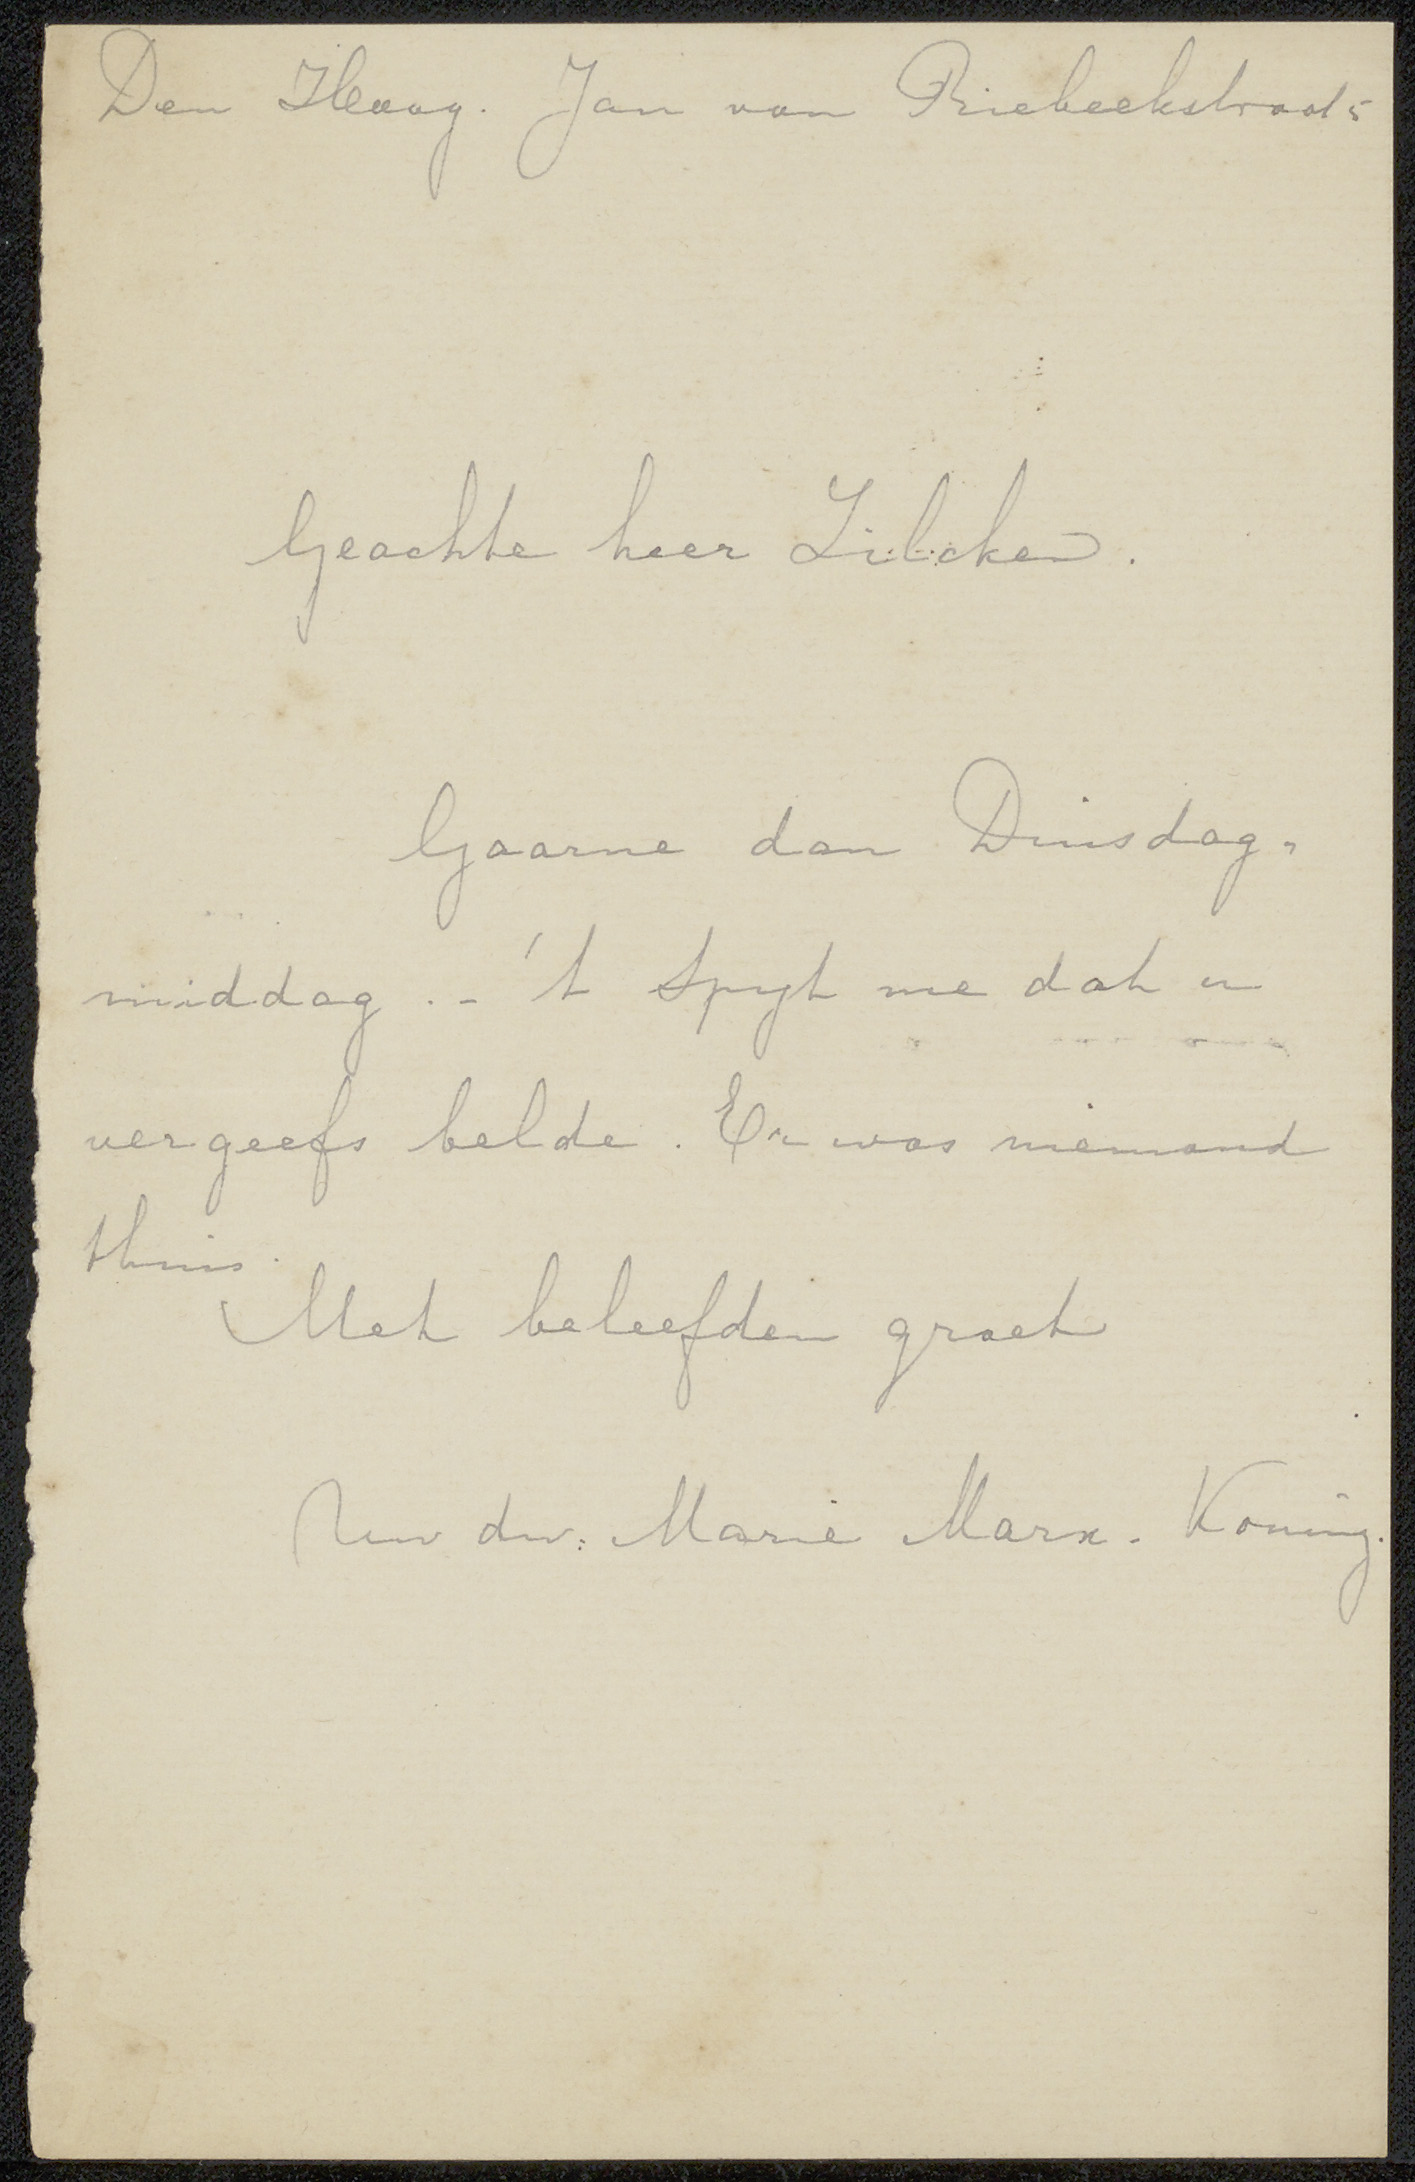 Den Haag. Jan van Riebeekstraat 5
Geachte heer Zilcken.
Gaarne dan Dinsdag-
middag. - 't spyt me dat u
vergeefs belde. Er was niemand
thuis.
Met beleefden groet
Uw dw: Marie Marx-Koning.